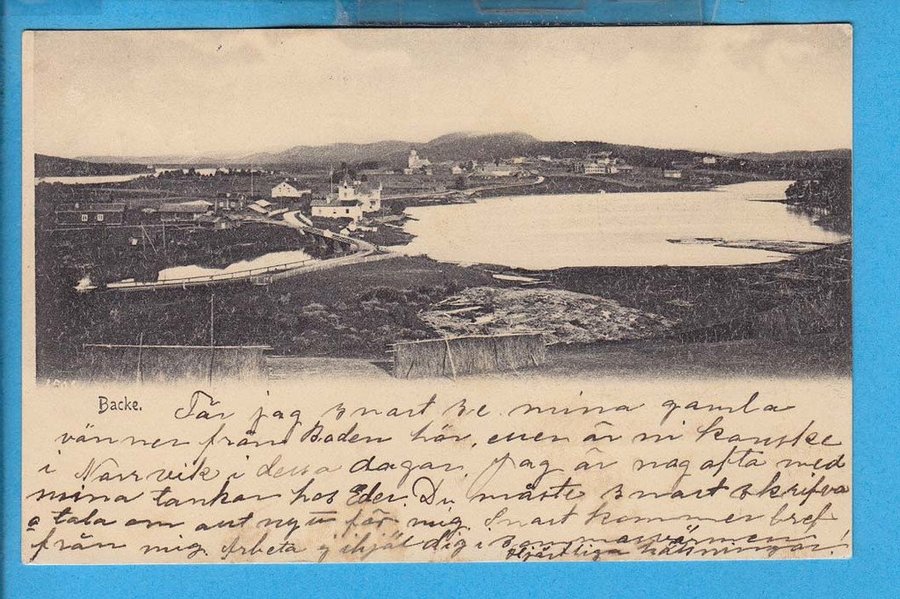 Backe.
Får jag snart se mina gamla
vänner från Boden här, euer är ni kanske
i Narrvik i dessa dagar. Jag är nog ofta med
mina tankar hos Eder. Du måste snart skrifva
o tala om allt nytt för mig. Snart kommer bref
från mig. Arbeta ej ihjäl dig i sommarvärmen
Hjärtliga hälsningar!